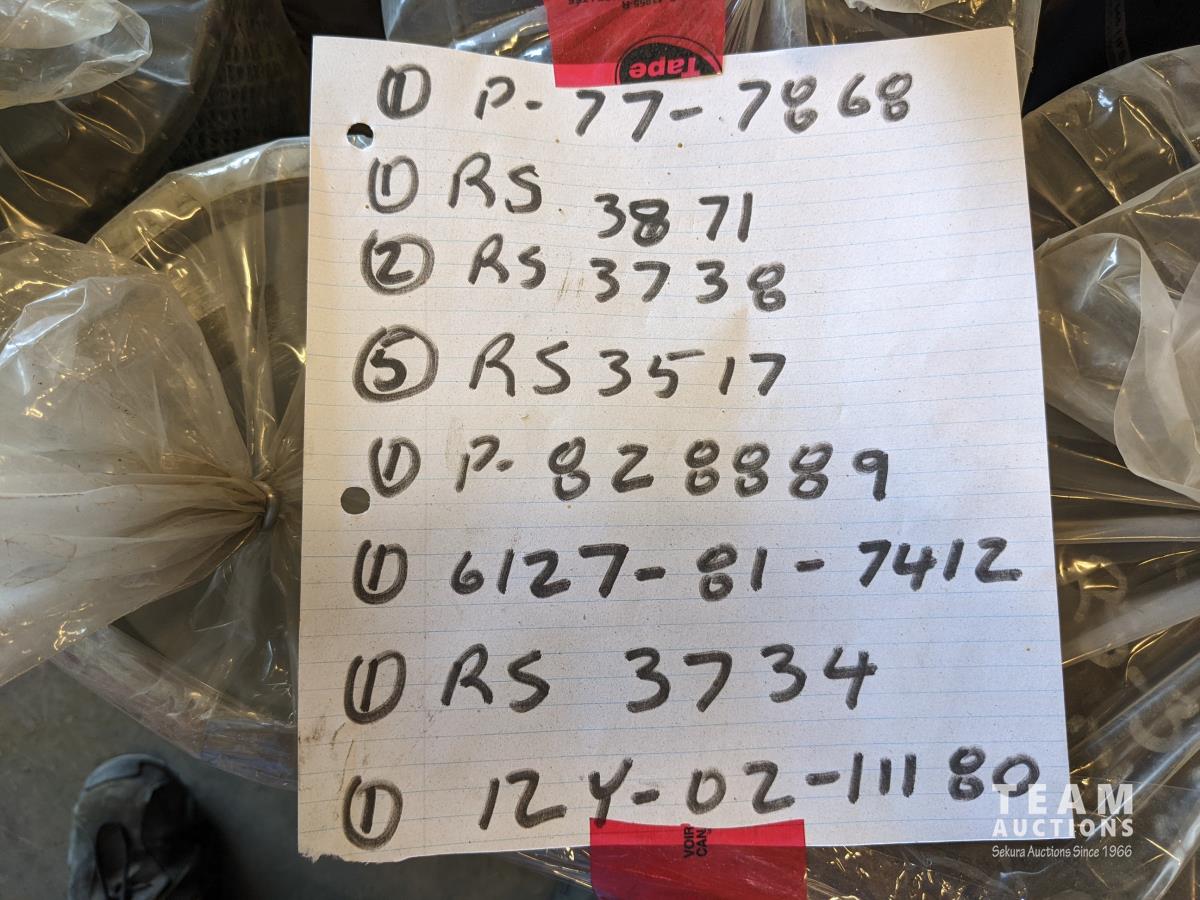 Tape
① P-77-7868
① RS 3871
② RS 3738
⑤ RS 3517
① P-828889
① 6127-81-7412
① RS 3734
① 12Y-02-11180
TEAM
AUCTIONS
Sekura Auctions Since 1966